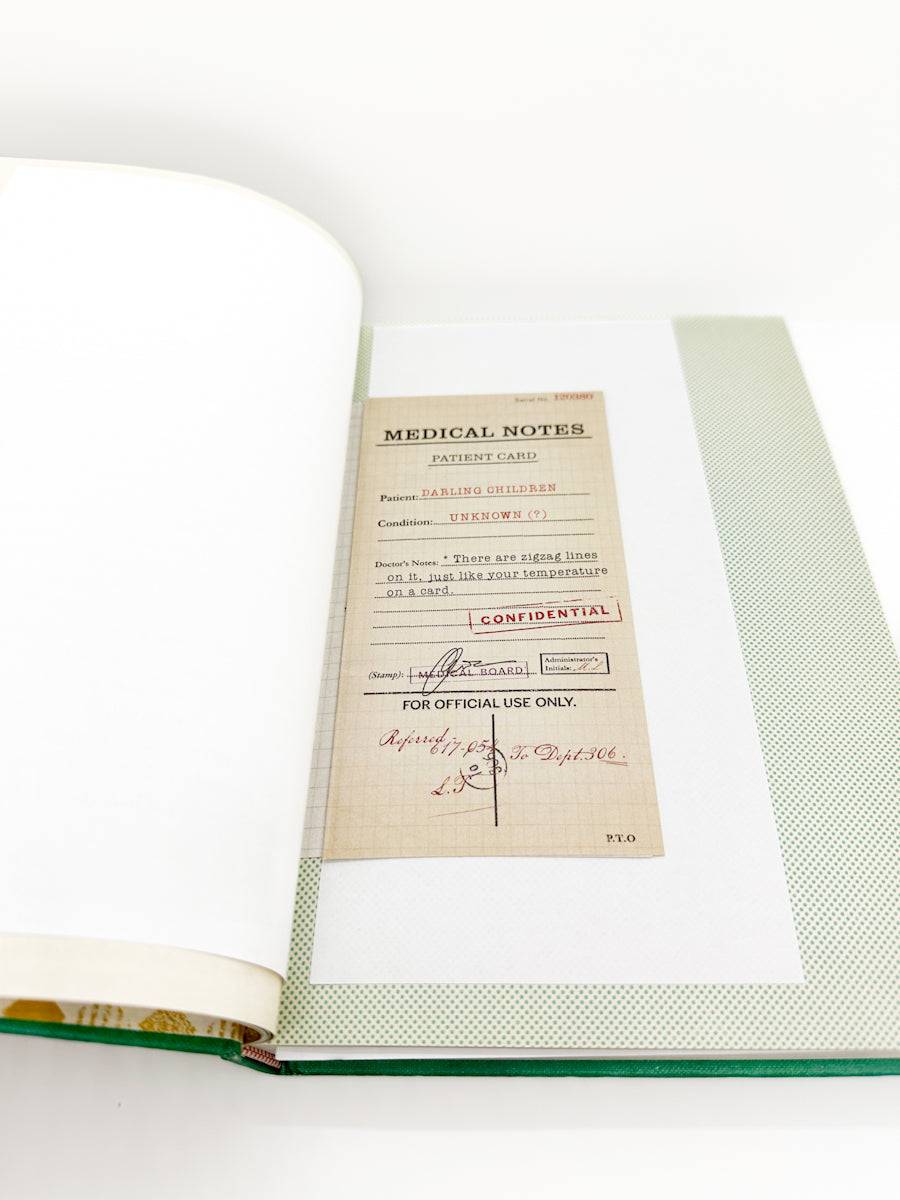 Serial No. 120380
MEDICAL NOTES
PATIENT CARD
Patient: DARLING CHILDREN
Condition: UNKNOWN (?)
Doctor's Notes: * There are zigzag lines
on it, just like your temperature
on a card.
CONFIDENTIAL
(Stamp): MEDICAL BOARD
Administrator's
Initials:
FOR OFFICIAL USE ONLY.
Referred -
617-054
To Dept. 306.
L.T
P.T.O